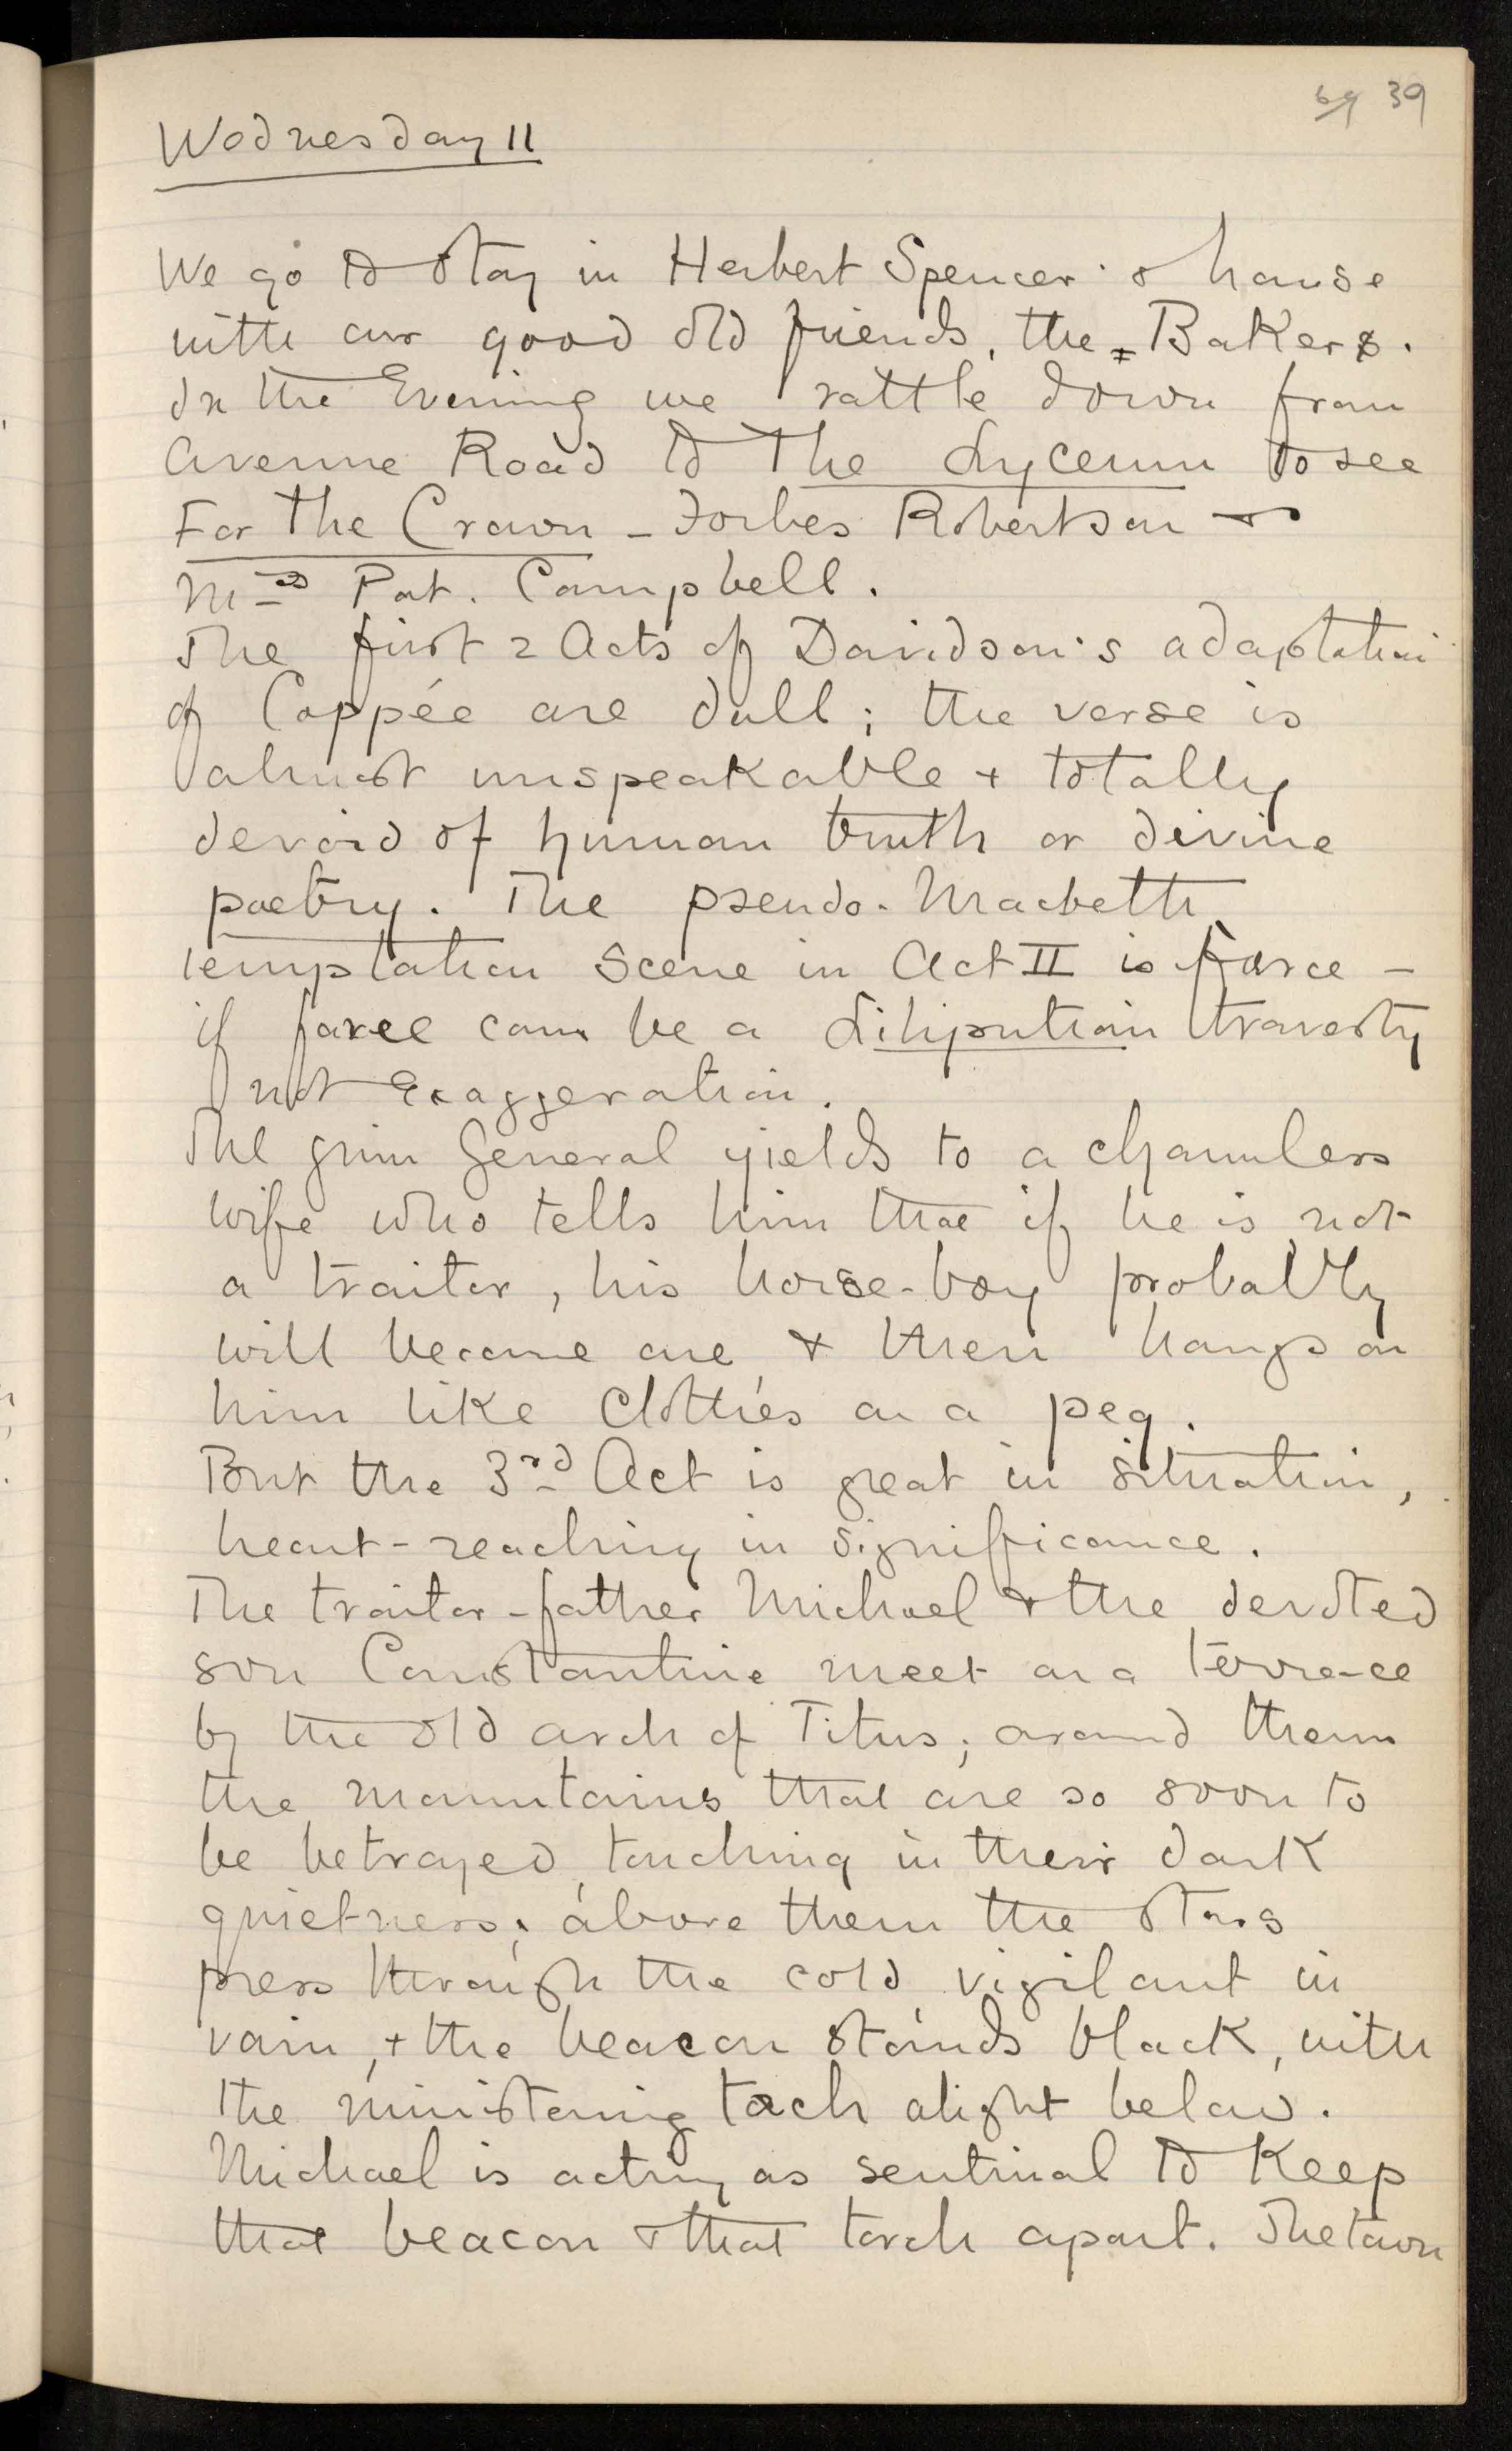 39
Wednesday 11
We go to stay in Herbert Spencer's house
with our good old friends, the Bakers.
In the Evening we rattle down from
Avenue Road to The Lyceum to see
For the Crown - Forbes Robertson &
Mrs Pat. Campbell.
The first 2 Acts of Davidson's adaptation
of Coppée are dull; the verse is
almost unspeakable & totally
devoid of human truth or divine
poetry. The pseudo-Macbeth
temptation Scene in Act II is farce -
if farce can be a Liliputian travesty
not Exaggeration.
The grim General yields to a charmless
wife who tells him that if he is not
a traitor, his horse-boy probably
will become one & then hangs on
him like Clothes on a peg.
But the 3rd Act is great in situation,
heart-reaching in significance.
The traitor-father Michael & the devoted
son Constantine meet on a terrace
by the old arch of Titus; around them
the mountains that are so soon to
be betrayed, touching in their dark
quietness; above them the stars
press through the cold, vigilant in
vain, & the beacon stands black, with
the ministering torch alight below.
Michael is acting as sentinal to keep
that beacon & that torch apart. The town